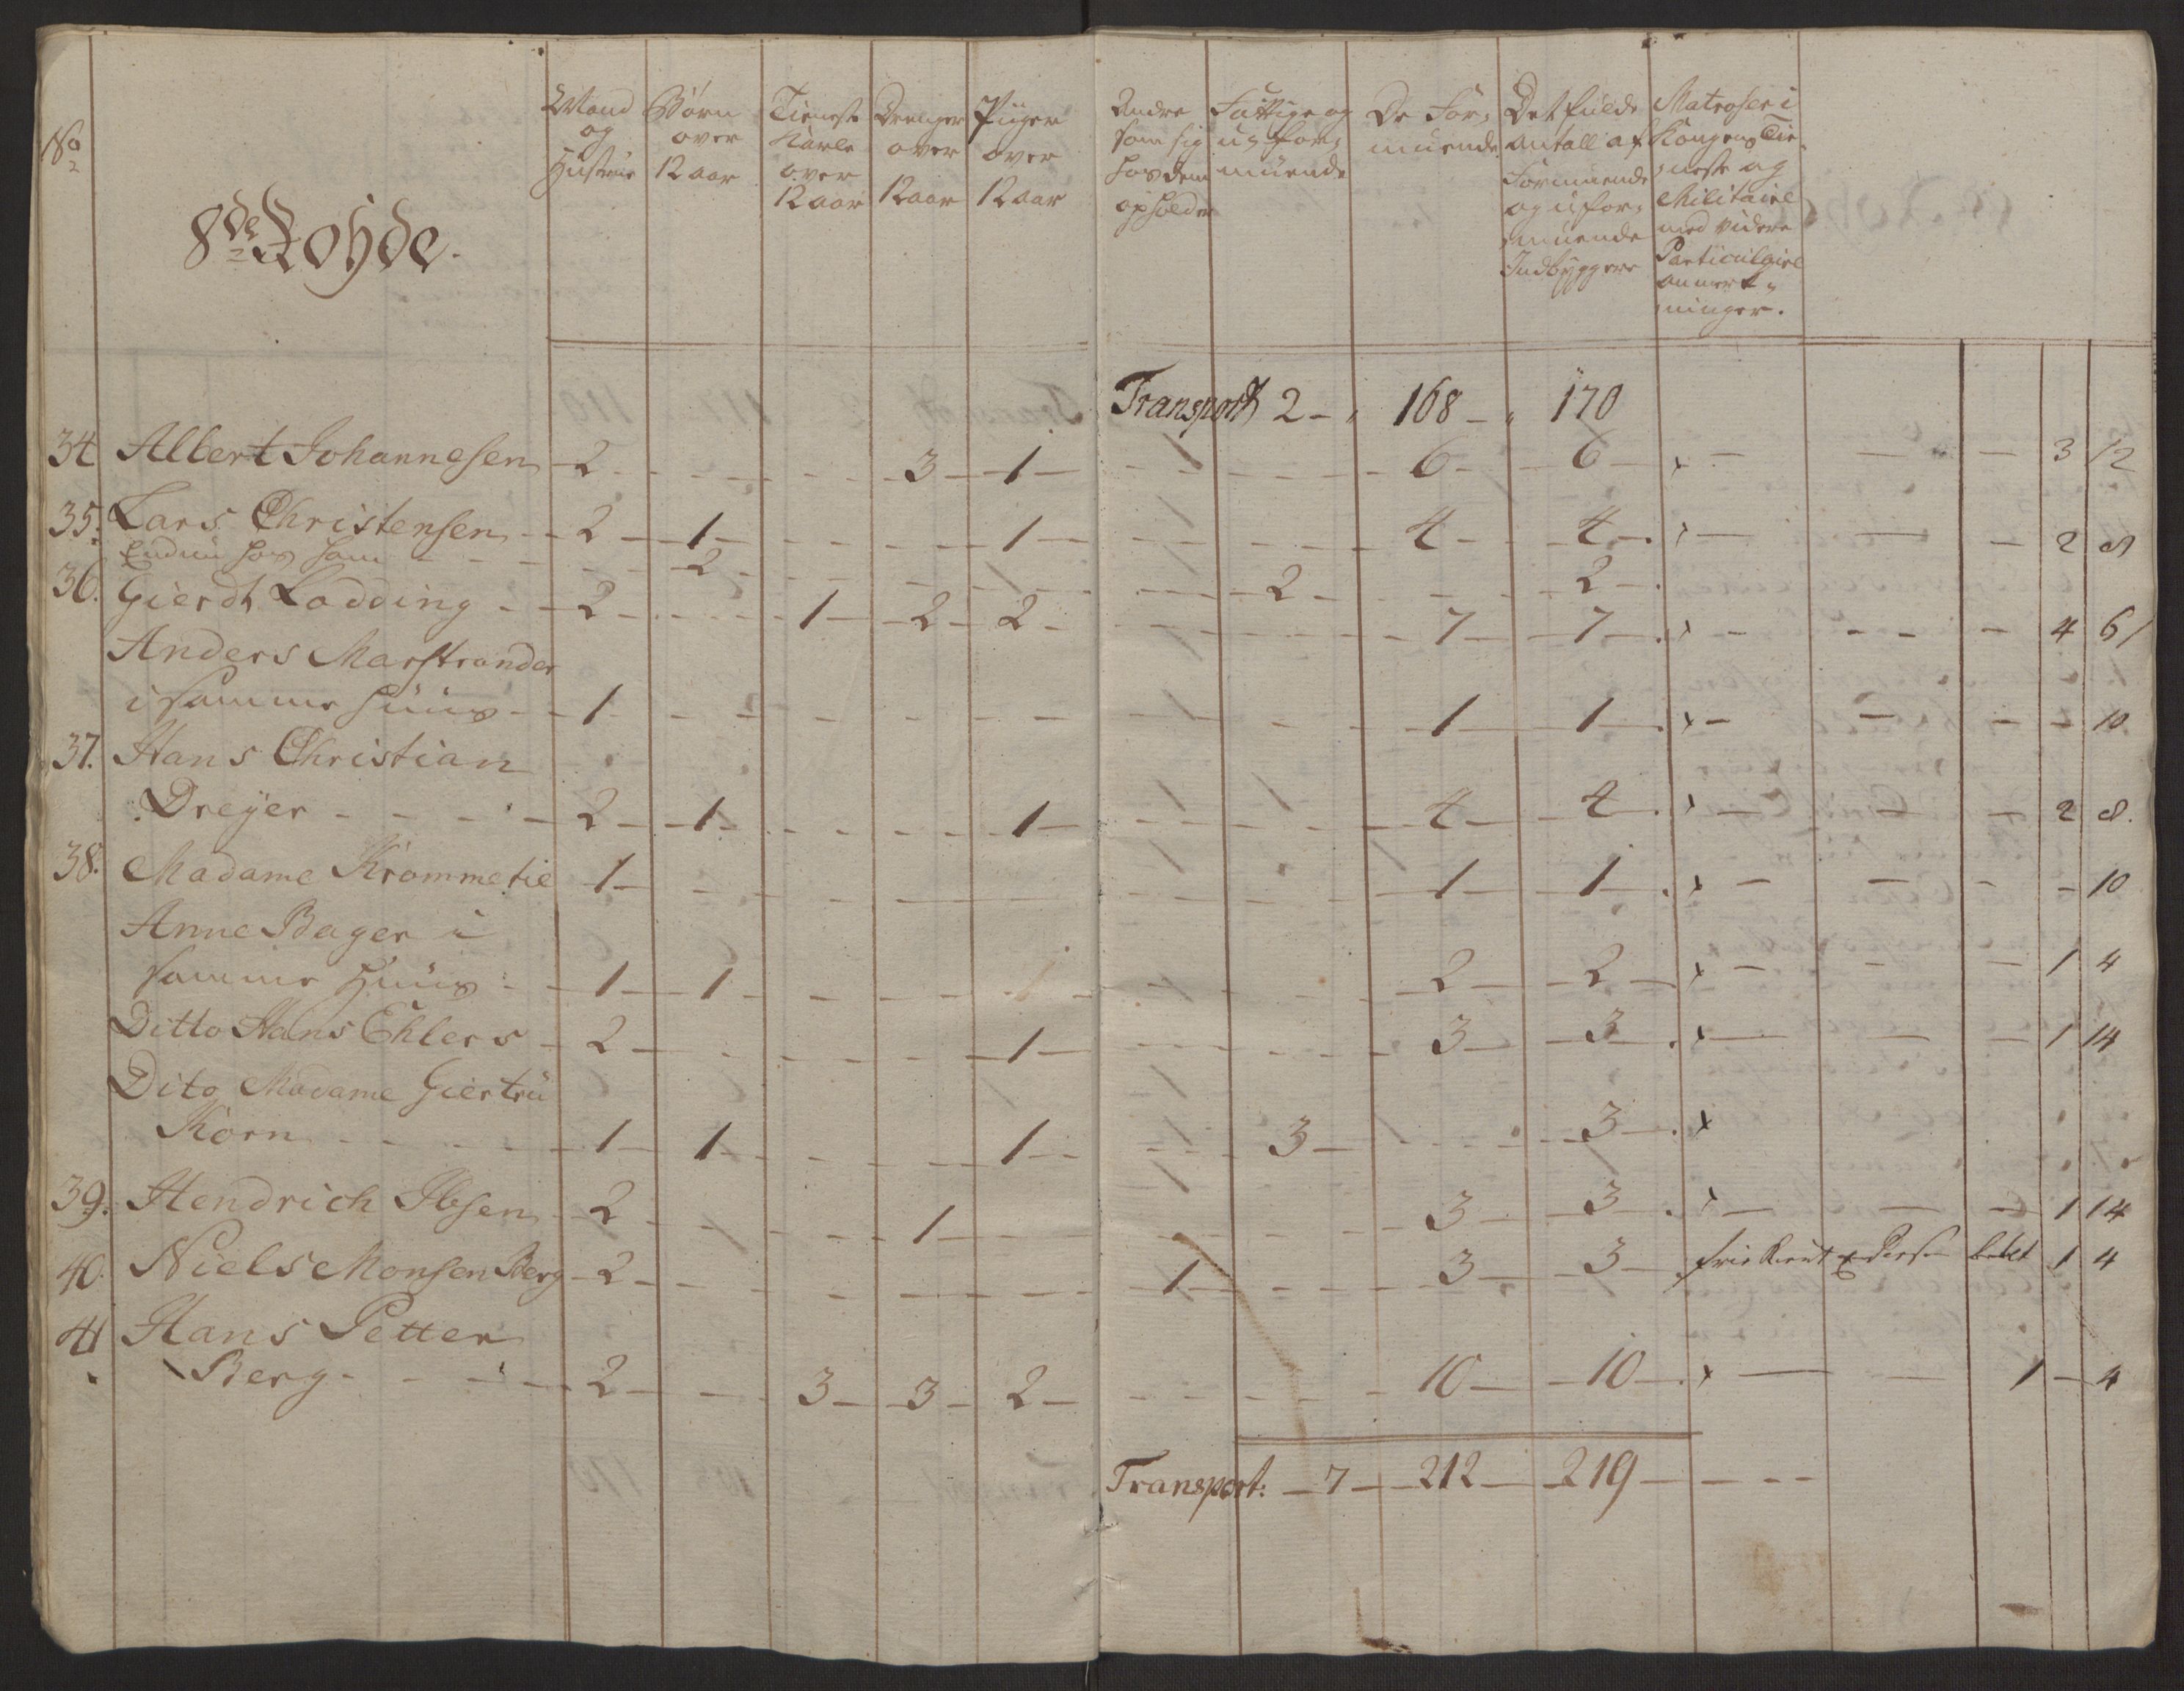 No
8de Rohde.
Mand og Hustrue
Børn over 12 aar
Tieneste Karle over 12 aar
Drenger over 12 aar
Piiger over 12 aar
Andre som sig hos dem opholder
Fattige og uformuende
De Formuende
Det fulde antall af Formuende og uformuende Indbyggere
Matroser i Kongens Tieneste og Militaire med videre Particulaire anmerkninger.
Transport 2 - 168 - 170
34 Albert Johannesen 2 - 3 - 1 - 6 - 6 x 3 12
35. Lars Christensen 2 - 1 - 1 - 4 - 4 x 2 8
Endnu hos ham - 2 - 2 - 2
36. Gierdt Lodding 2 - 1 - 2 - 2 - 7 - 7 x 4 6
Anders Marstrander
i samme huus - 1 - 1 - 1 x - 10
37. Hans Christian
Dreyer - 2 - 1 - 1 - 4 - 4 x 2 8.
38. Madame Krommetie 1 - 1 - 1 x - 10
Anne Bager i
samme Huus - 1 - 1 - 2 - 2 x 1 4
Ditto Hans Ehlers - 2 - 1 - 3 - 3 x 1 14
Dito Madame Giertru
Korn - 1 - 1 - 1 - 3 - 3 x
39. Hendrich Ibsen 2 - 1 - 3 - 3 x 1 14
40. Niels Monsen Berg 2 - 1 - 3 - 3 1 4
41 Hans Petter
Berg - 2 - 3 - 3 - 2 - 10 - 10 x 1 - 4
Transport: 7 - 212 - 219